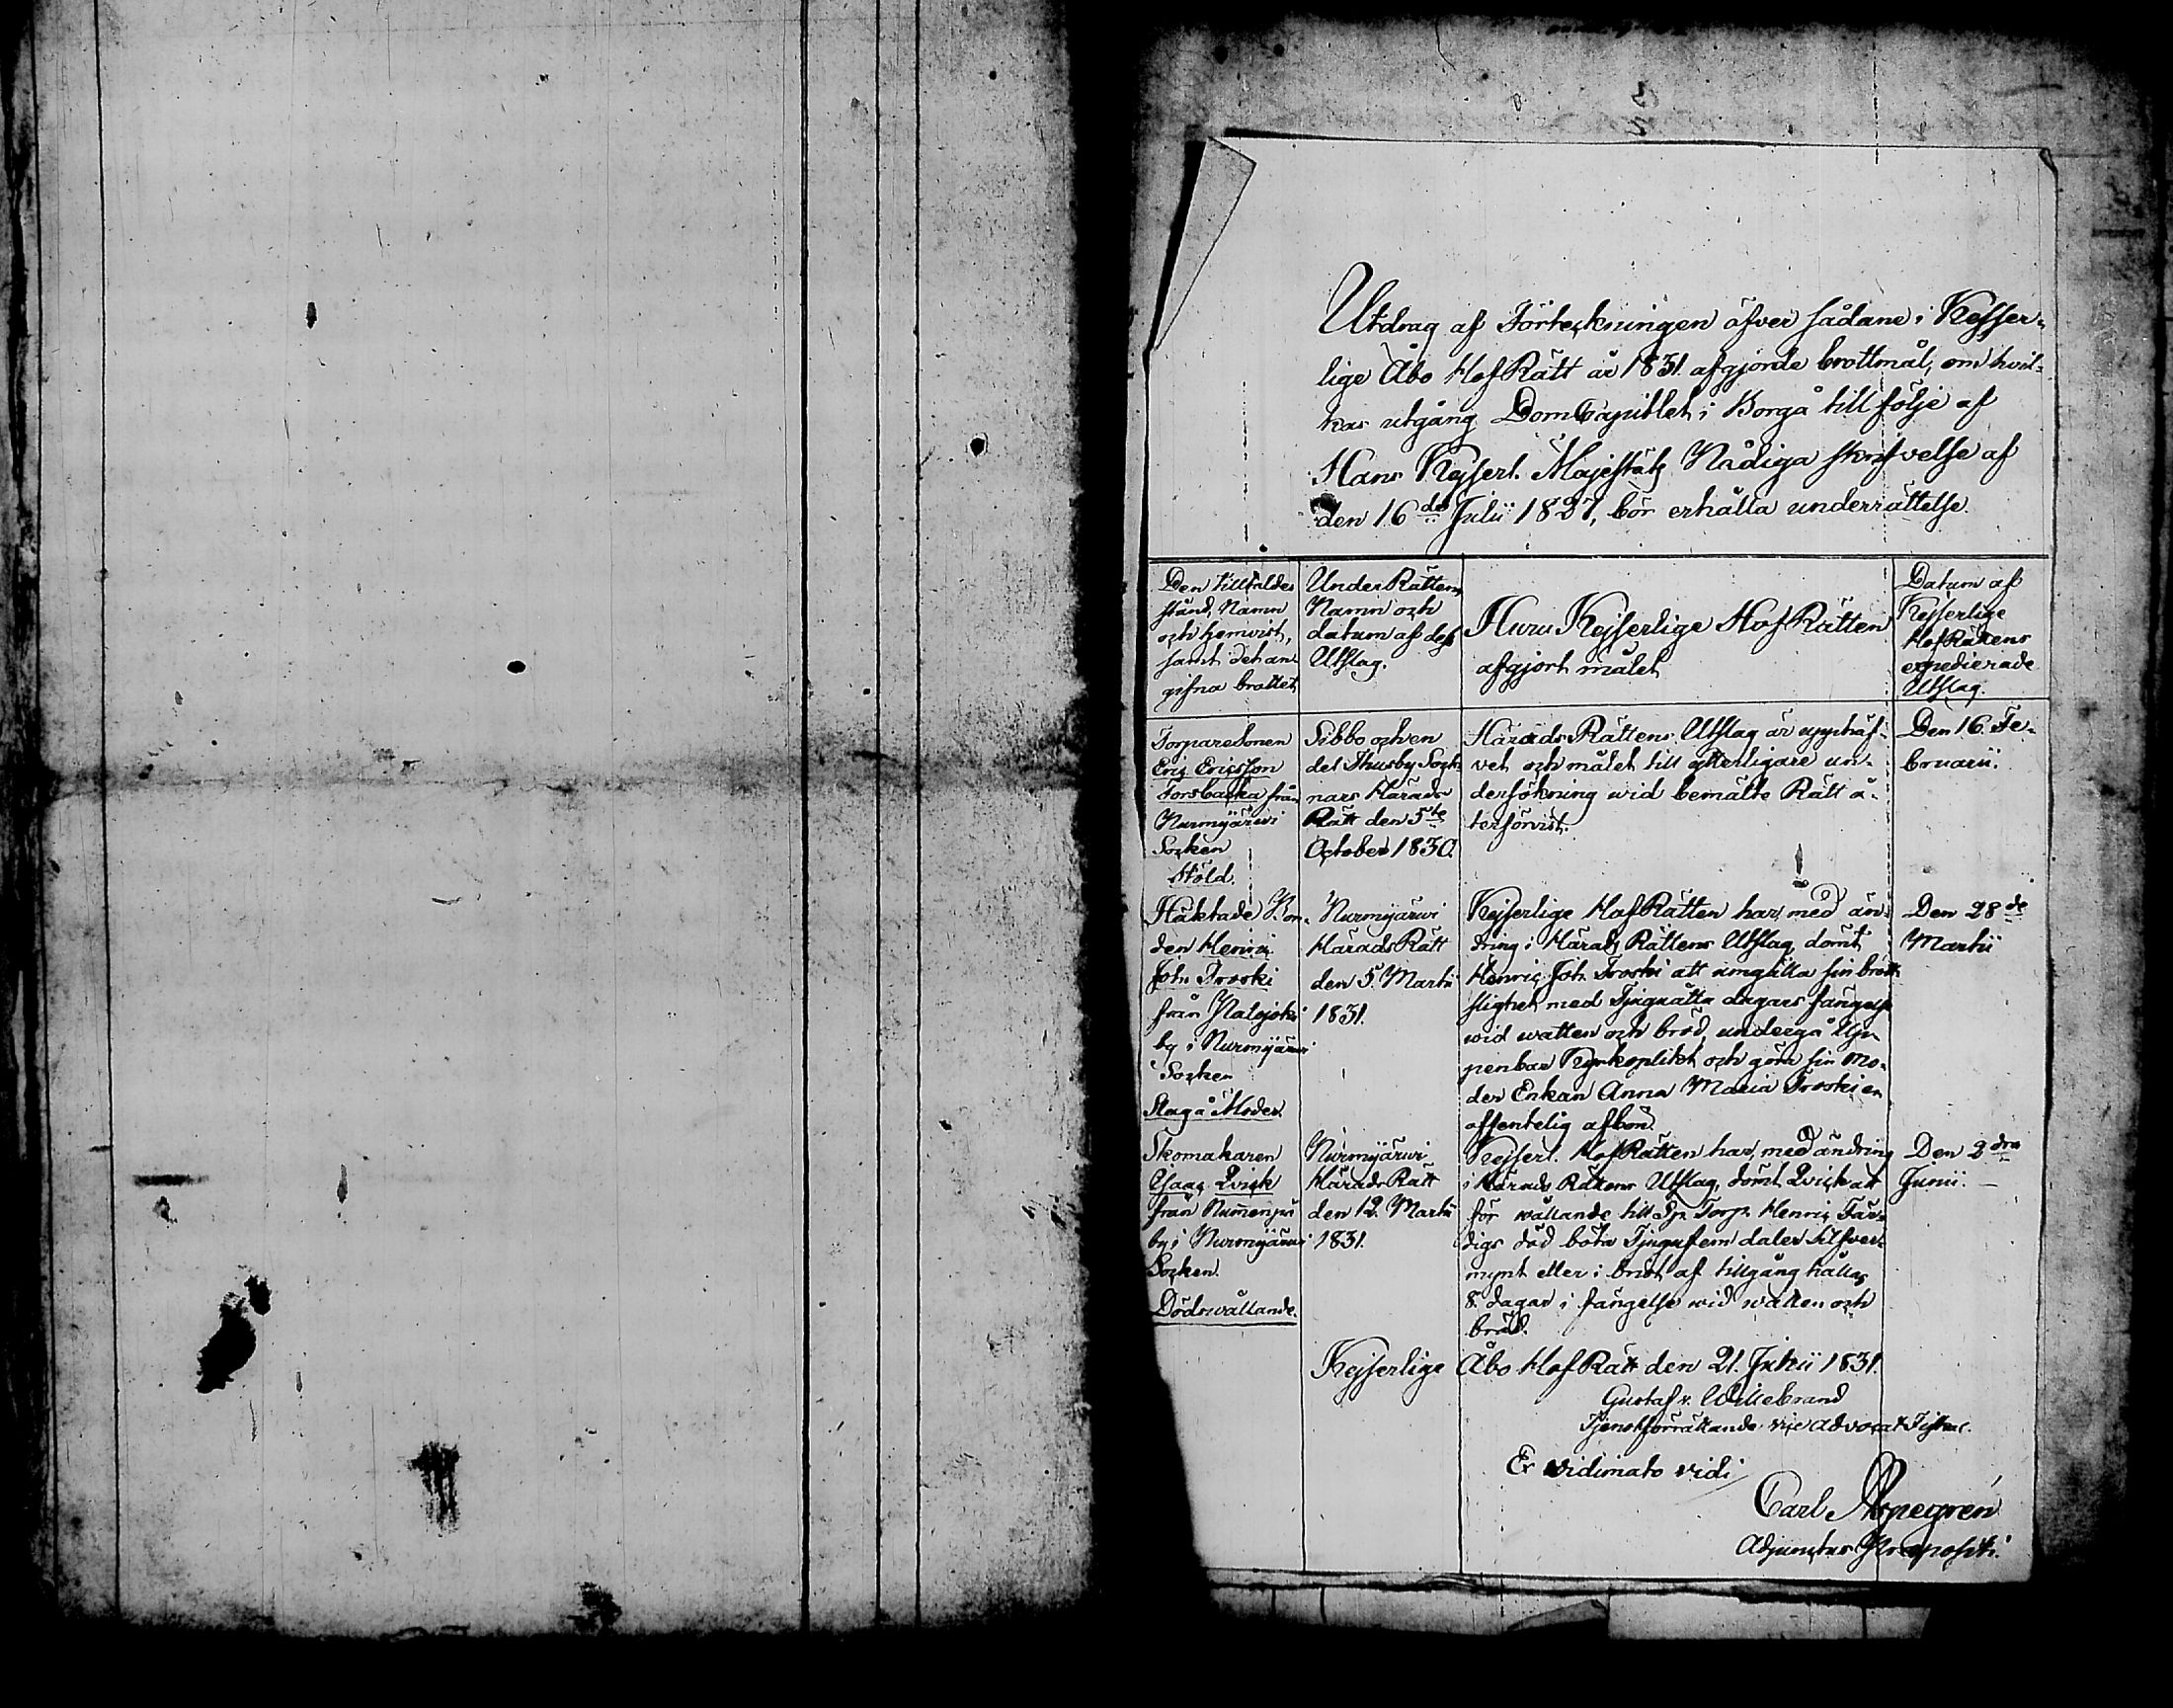 Utdrag af Förteckningen öfver sådane i Kejser-
lige Åbo HofRätt år 1831 afgjorde brottmål, om hvil-
kas utgång DomCapitlet i Borgå till följe af
Hans Kejserl. Majestäts Nådiga skrifvelse af
den 16de Julii 1827, bör erhålla underrättelse.
Den tilltaldes
stånd, Namn
och hemvist,
samt det an-
gifna brottet
UnderRättens
Namn och
datum af dess
Utslag.
Huru Kejserlige HofRätten
afgjort målet
Datum af
Kejserlige
HofRättens
expedierade
Utslag.
Torparesonen
Eric Ericsson
Forsbacka från
Nurmijärwi
Socken
Stöld.
Sibbo och en
del Thusby Sock-
nars Härads
Rätt den 5te
October 1830.
HäradsRättens Utslag är upphäf-
vet och målet till ytterligare un-
dersökning wid bemälte Rätt å-
terförvist.
Den 16. Fe-
bruarii.
Häktade Bon-
den Henric
Joh. Troski
från Palojoki
by i Nurmijärwi
Socken
Slagå Moder.
Nurmijärwi
HäradsRätt
den 5. Martii
1831.
Kejserlige HofRätten har, med än-
dring i Härads Rättens Utslag, dömt
Henric Joh. Troski att umgälla sin brott-
slighet med Tjuguåtta dagars fängelse
wid watten och bröd, undergå Up-
penbar Kyrkoplikt och göra sin Mo-
der Enkan Anna Maria Troski en
offentelig afbön.
Den 28de
Martii
Skomakaren
Isaac Qvick
från Nummenpää
by i Nurmijärwi
Socken.
Dödswållande.
Nurmijärwi
HäradsRätt
den 12. Martii
1831.
Kejserl. HofRätten har, med ändring
i Härads Rättens Utslag, dömt Qvick att
för wållande till Sp. Torp. Henric Fär-
digs död böta Tjugufem daler Silfver-
mynt eller i brist af tillgång hållas
8. dagar i fängelse wid watten och
bröd.
Den 2dra
Junii.
Kejserlige Åbo HofRätt den 21. Julii 1831.
Gustaf v. Willebrand
Tjenstförrättande vice Advocat Fiskal.
Ex vidimato vidi
Carl Aspegren
Adjunctus Præpositi.